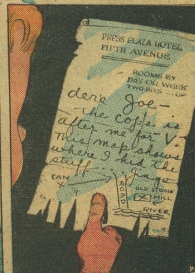 PRESS PLAZA HOTEL
FIFTH AVENUE
ROOMS BY
DAY OR WEEK
TWO BITS UP
dere Joe -
the cops is
after me for
this map shows
where I hid the
stuff
CAN
ROAD
OLD STONE
MILL
RIVER